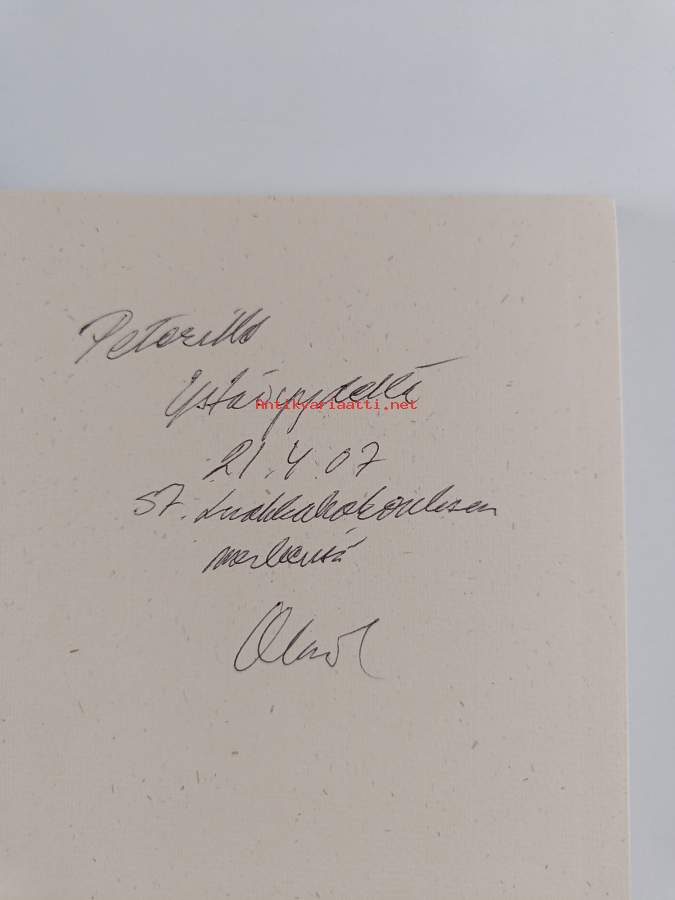 Peterille
ystävyydellä
Antikvariaatti.net
21.4.07
57. Luokkakokouksen
merkeissä